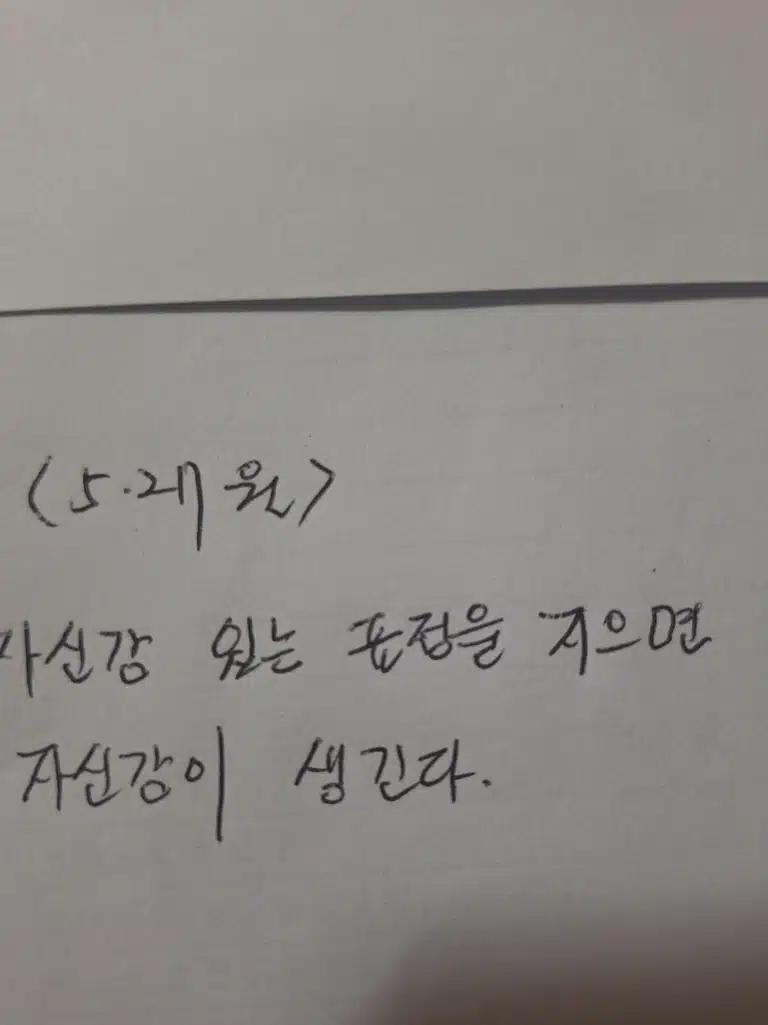 <5.러 원>
자신감 있는 표정을 지으면
자신감이 생긴다.